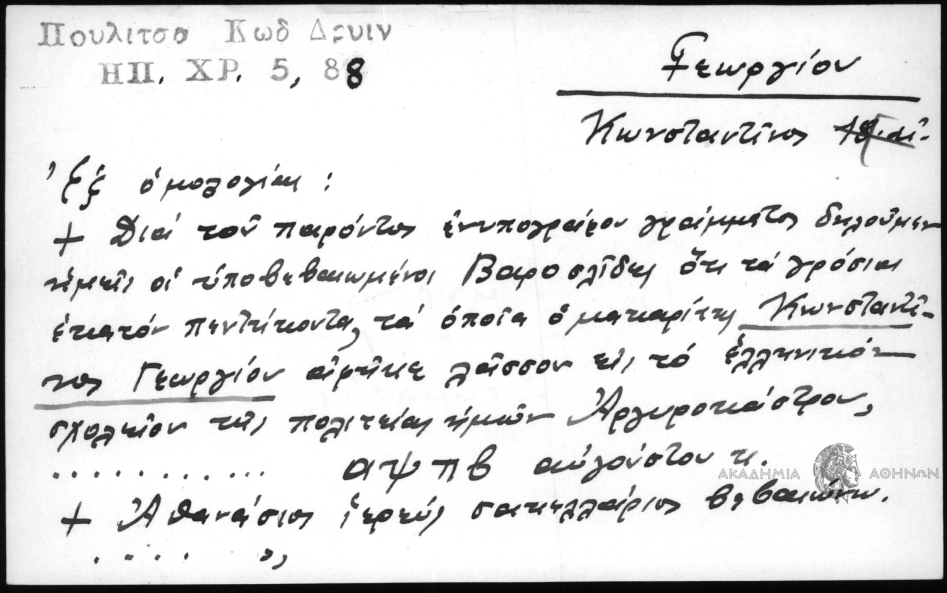 Πουλιτσα Κωδ Δρυιν
ΗΠ. ΧΡ. 5, 88
Γεωργίου
Κωνσταντῖνος
Ἐξ ὁμολογίας :
+ Διά τοῦ παρόντος ἐνυπογράφου γράμματος δηλοῦμεν
ἡμεῖς οἱ ὑποβεβαιωμένοι Βαροσλῖδες ὅτι τά γρόσια
ἑκατόν πεντήκοντα, τά ὁποῖα ὁ μακαρίτης Κωνσταντῖ-
νος Γεωργίου ἀφῆκε λάσσον εἰς τό ἑλληνικόν
σχολεῖον τῆς πολιτείας ἡμῶν Ἀργυροκάστρου,
............. αψπβ αὐγούστου κ.
ΑΚΑΔΗΜΙΑ ΑΘΗΝΩΝ
+ Ἀθανάσιος ἱερεύς σακελλάριος βεβαιώνω.